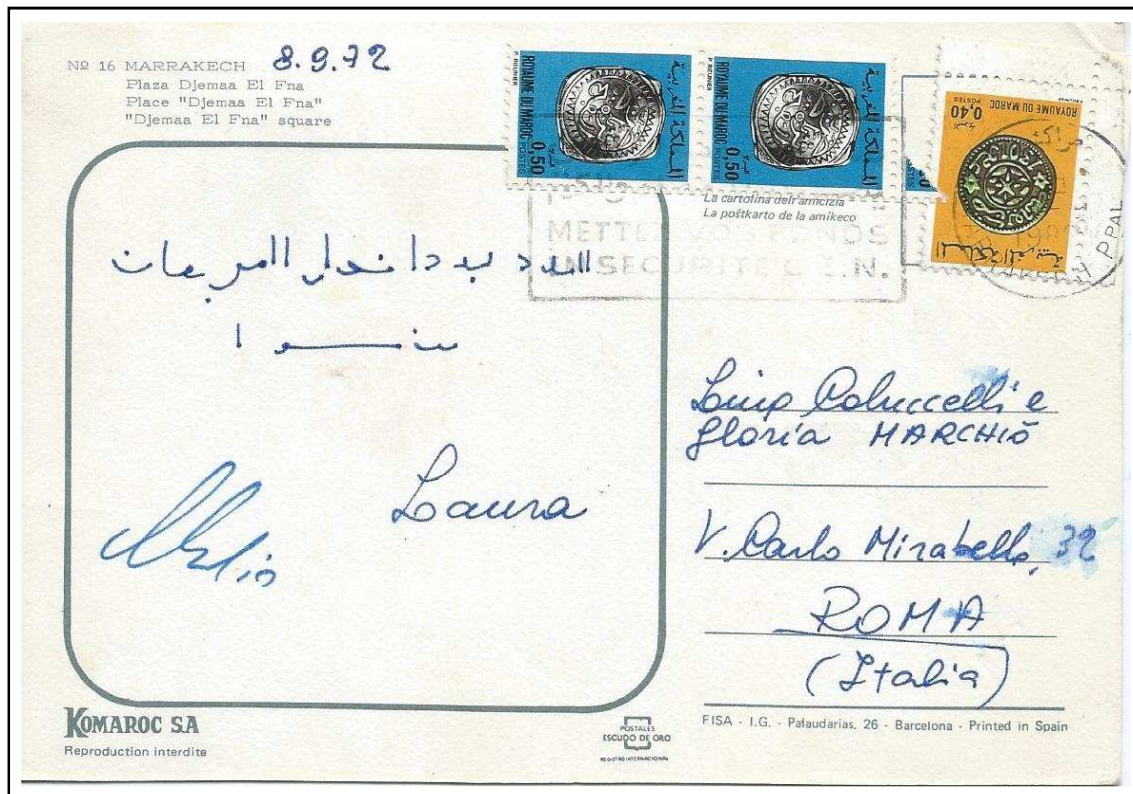 Nº 16 MARRAKECH 8.9.72
Plaza Djemaa El Fna
Place "Djemaa El Fna"
"Djemaa El Fna" square
ROYAUME DU MAROC
POSTES
0,50
المملكة المغربية
ROYAUME DU MAROC
POSTES
0,50
المملكة المغربية
ROYAUME DU MAROC
POSTES
0,40
المملكة المغربية
La cartolina dell'amicizia
La poŝtkarto de la amikeco
METTEZ VOS FONDS
EN SECURITE C.E.N.
PPAL
Laura
Luigi Coluccelli e
Gloria MARCHIÒ
V. Carlo Mirabello, 32
ROMA
(Italia)
KOMAROC S.A
Reproduction interdite
POSTALES
ESCUDO DE ORO
REGISTRO INTERNACIONAL
FISA - I.G. - Palaudarias, 26 - Barcelona - Printed in Spain